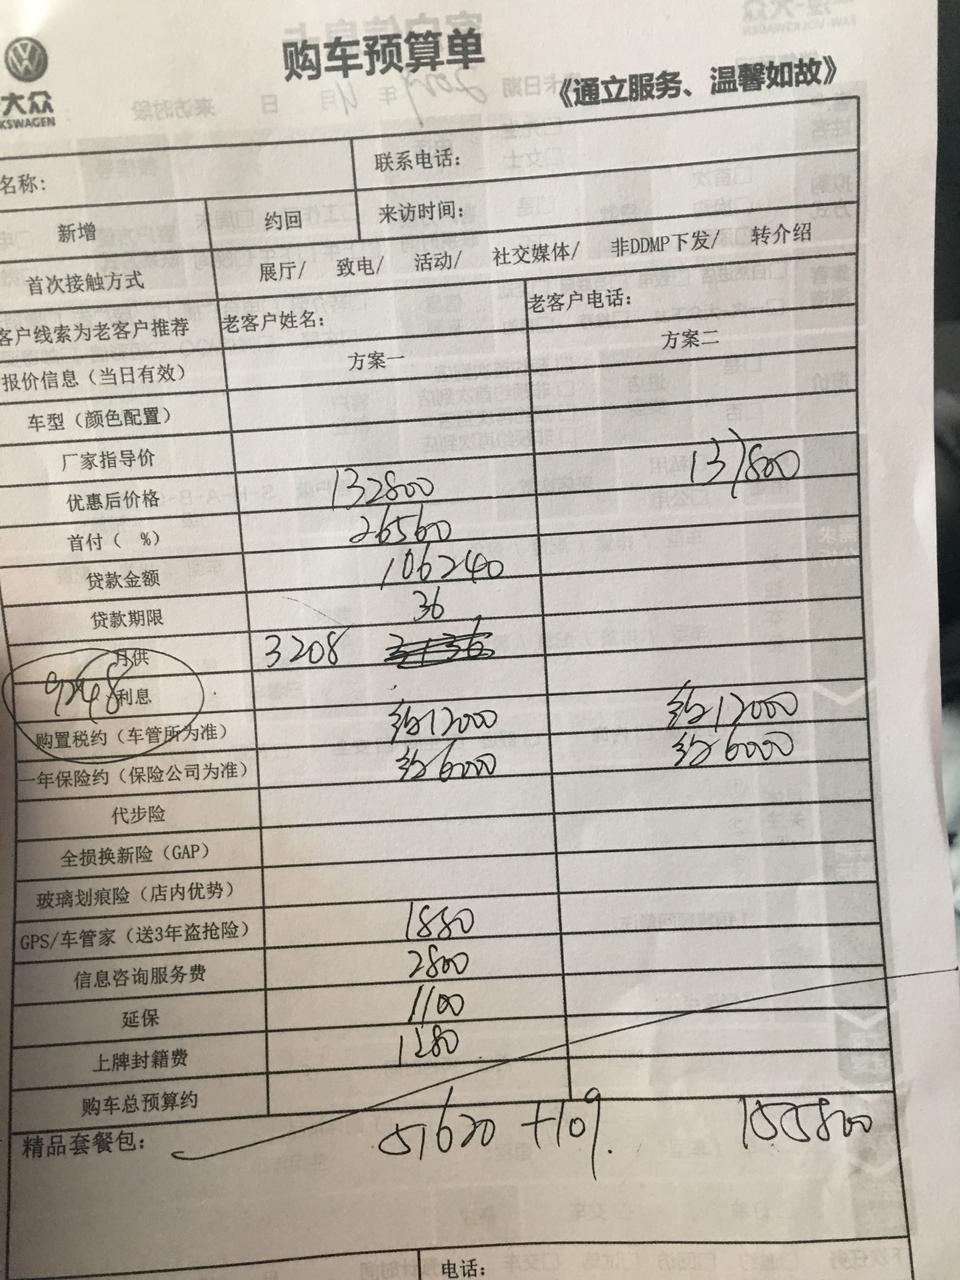 购车预算单
大众
KSWAGEN
《通立服务、温馨如故》
名称:
联系电话:
新增
约回
来访时间:
首次接触方式
展厅/ 致电/ 活动/ 社交媒体/ 非DDMP下发/ 转介绍
客户线索为老客户推荐
老客户姓名:
老客户电话:
报价信息（当日有效）
方案一
方案二
车型（颜色配置）
厂家指导价
优惠后价格
132800
137800
首付（ %）
26560
贷款金额
106240
贷款期限
36
月供
3208
9248
利息
购置税约（车管所为准）
约12000
约12000
一年保险约（保险公司为准）
约6000
约6000
代步险
全损换新险（GAP）
玻璃划痕险（店内优势）
GPS/车管家（送3年盗抢险）
1880
信息咨询服务费
2800
延保
1100
上牌封籍费
1280
购车总预算约
精品套餐包:
51620 +109
155800
电话: